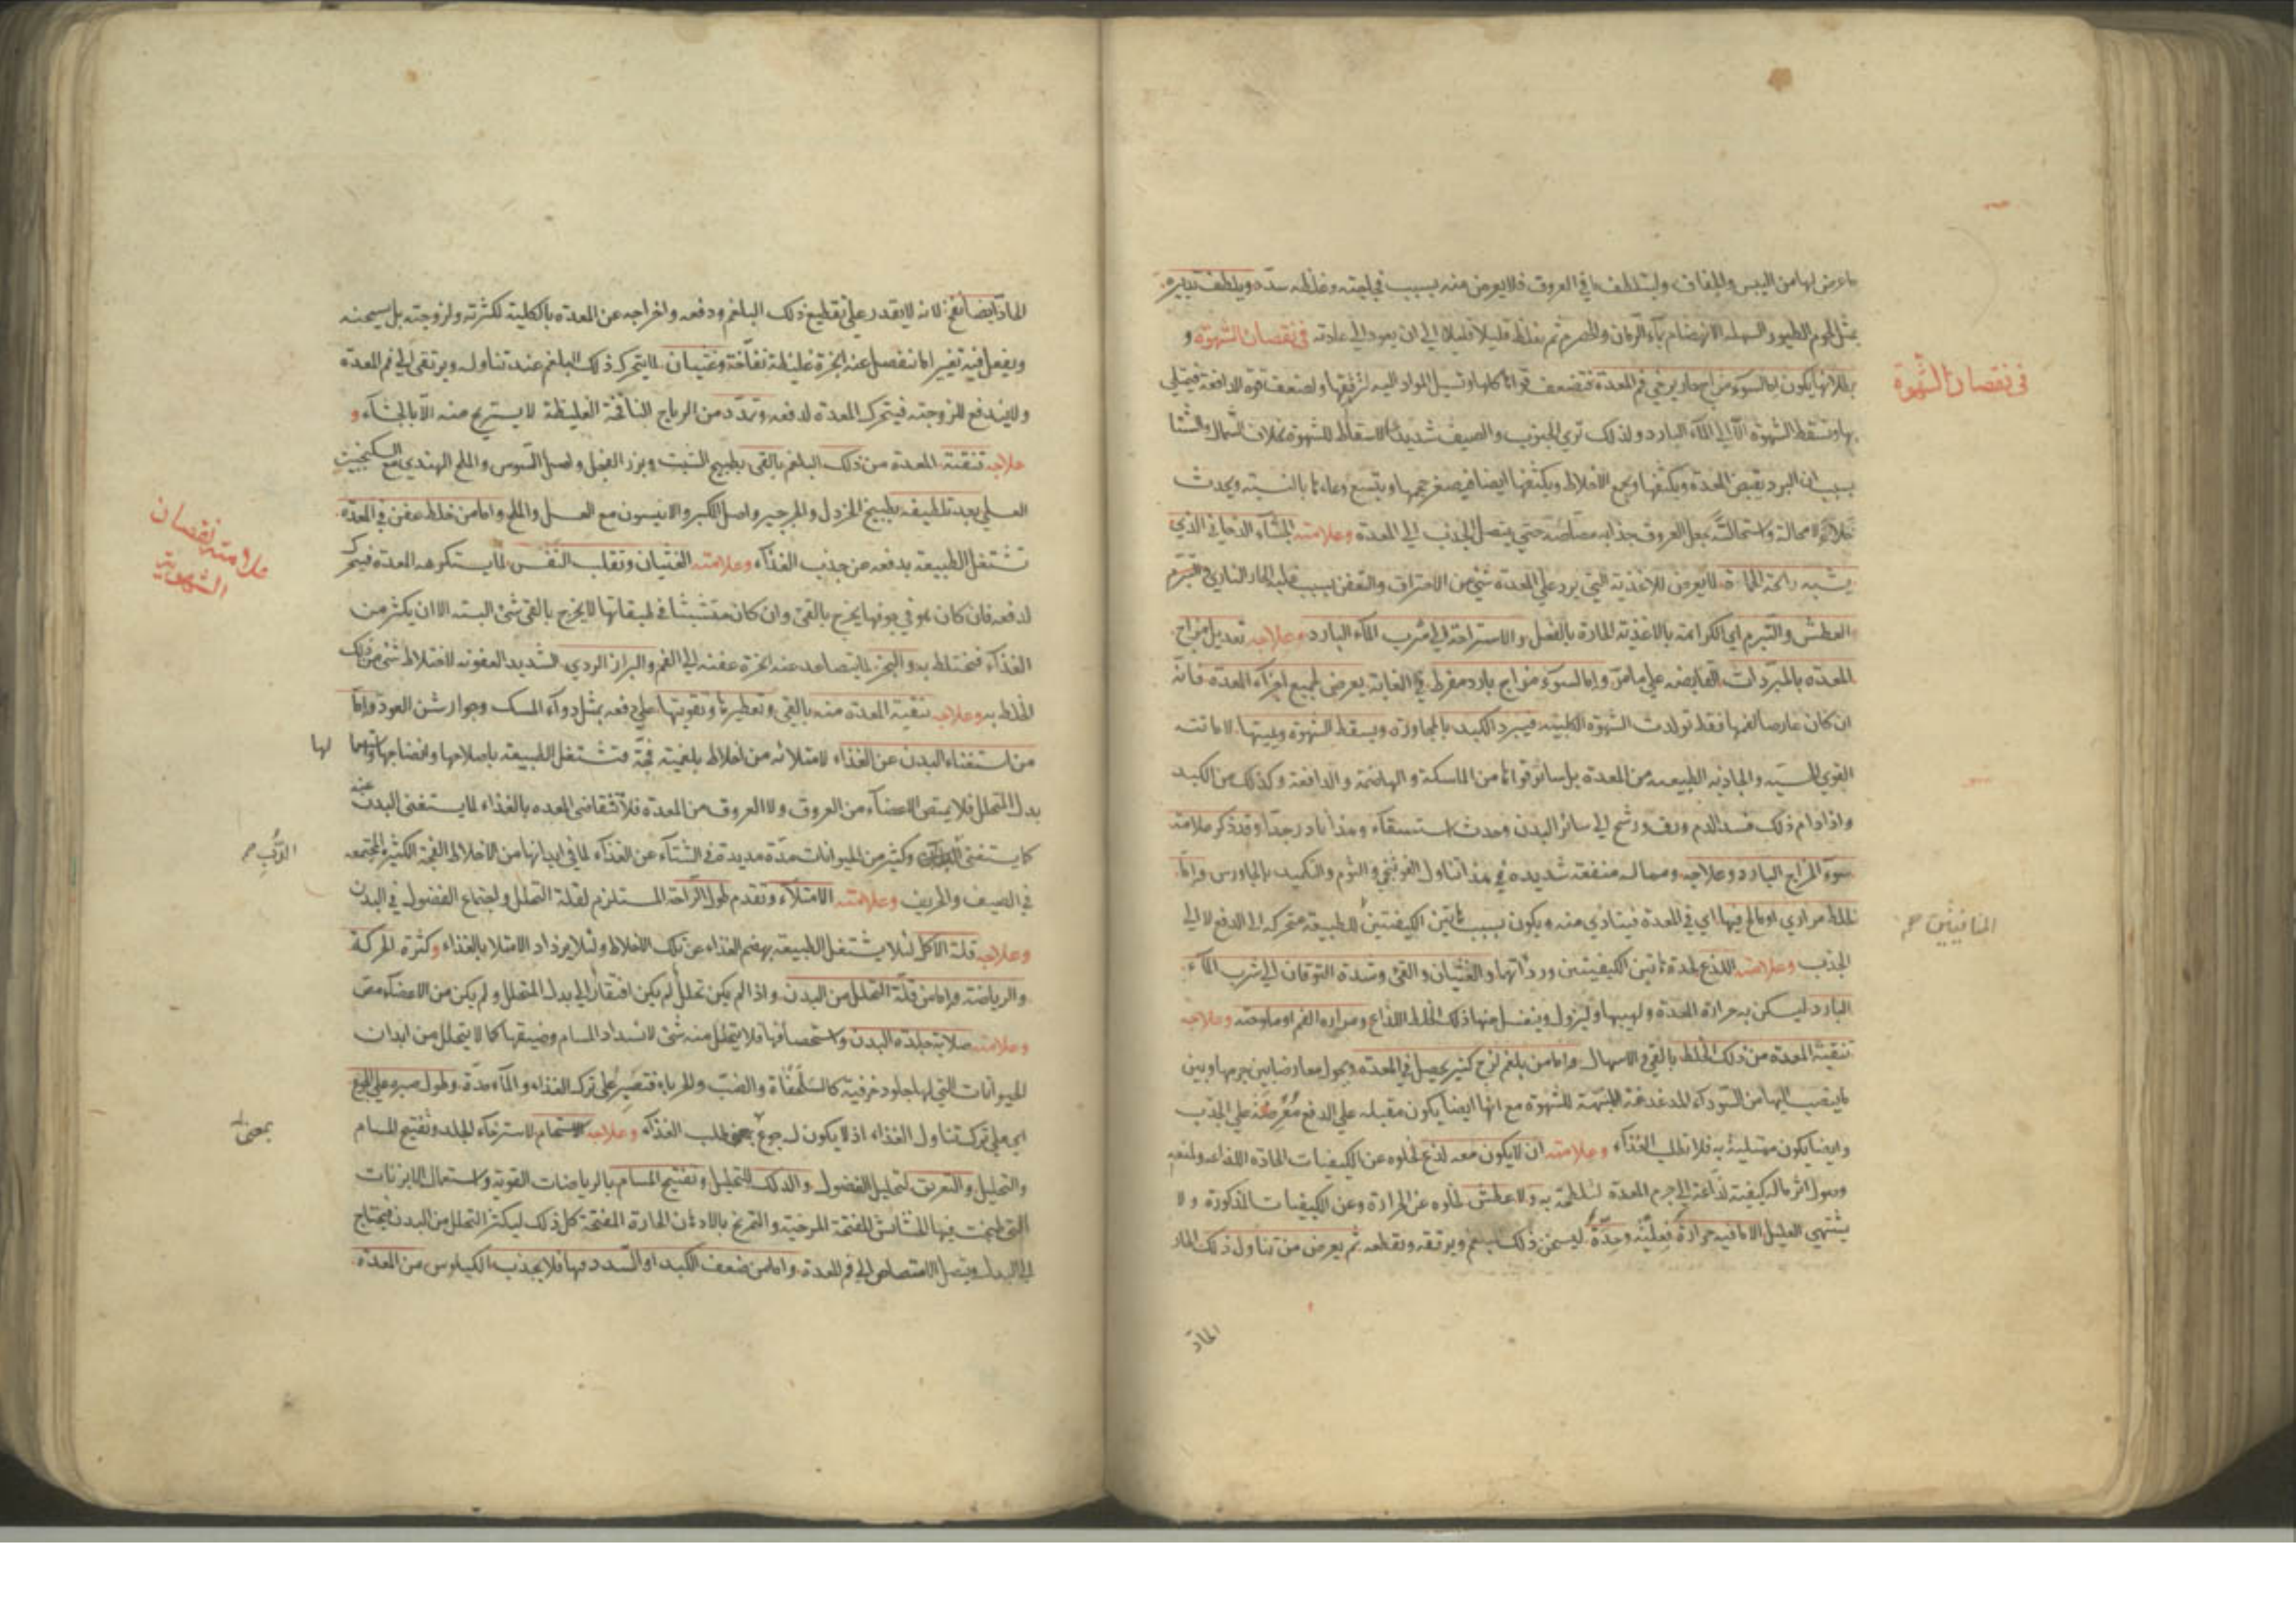 ما عرض لها من اليبس والجفاف ولتلطف ما في العروق فلا يعرض منه بسبب فجاجته وغلظه سدد ويلطف تدبيره
بمثل لحوم الطيور السهلة الانهضام بماء الرمان والحصرم ثم يغلظ قليلا قليلا الى ان يعود الى عادته في نقصان الشهوة و
بطلانها يكون اما لسوء مزاج حار يرخي فم المعدة فتضعف قواها كلها وتسيل المواد اليه لترقيقها ولضعف قوة الدافعة فيمتلي
بها وتسقط الشهوة الا الى الماء البارد ولذلك ترى الجنوب والصيف شديدي الاسقاط للشهوة بخلاف الشمال والشتا
بسبب ان البرد يقبض المعدة ويكثفها ويجمع الاخلاط ويكثفها ايضا فيصغر حجمها ويتسع وعاءها بالنسبة ويحدث
خلاء لا محالة واستحالته بجعل العروق جذابة مصاصة حتى يتصل الجذب الى المعدة وعلامته الجشاء الدخاني الذي
يشبه رائحة الحمأة لما يعرض للاغذية التي يرد على المعدة شيء من الاحتراق والتعفن بسبب غلبة الحار الناري
العطش والتبرم اي الكراهة بالاغذية الحارة بالفعل والاستراحة الى شرب الماء البارد وعلاجه تعديل مزاج
المعدة بالمبردات القابضة على ما مر واما لسوء مزاج بارد مفرط في الغاية يعرض لجميع اجزاء المعدة فانه
ان كان عارضا لفمها فقط تولدت الشهوة الكلبية فيبرد الكبد بالمجاورة ويسقط الشهوة ويميتها لاماتته
القوى الحسية والجاذبة الطبيعية من المعدة بل سائر قواها من الماسكة والهاضمة والدافعة وكذلك من الكبد
واذا دام ذلك فسد الدم ورق ورشح الى سائر البدن وحدث استسقاء وهذا نادر جدا وقد ذكر علامته
سوء المزاج البارد وعلاجه ومما له منفعة شديدة في هذا تناول الفوتنجي والثوم والتكميد بالجاورس واما
لخلط مراري او مالح فيها اي في المعدة فيتاذى منه ويكون بسبب هاتين الكيفيتين للطبيعة متحركة الى الدفع لا الى
الجذب وعلامته اللذع لحدة هاتين الكيفيتين وردائتها والغثيان والقئ وشدة التوقان الى شرب الماء
البارد ليسكن به حرارة المعدة ولهيبها وليزول وينغسل منها ذلك الخلط اللذاع ومرارة الفم او ملوحته وعلاجه
تنقية المعدة من ذلك الخلط بالقي والاسهال واما من بلغم لزج كثير يحصل في المعدة ويحول معارضا بين جرمها وبين
ما ينصب اليها من السوداء المدغدغة المشهية للشهوة مع انها ايضا يكون مقبلة على الدفع معرضة على الجذب
وايضا يكون ممتلئة به فلا تطلب الغذاء وعلامته ان لا يكون معه لذع لخلوه عن الكيفيات الحادة اللذاعة ولمنعه
وصول اثر ما له كيفية لذاعة الى جرم المعدة لتلطخه به ولا عطش لخلوه عن الحرارة وعن الكيفيات المذكورة ولا
يشتهي العليل الا ما فيه حرارة فعلية وحدة ليسخن ذلك البلغم ويرققه ويقطعه ثم يعرض من تناول ذلك الحار
الحار
في نقصان الشهوة
المنافيتين صح
الحار ايضا نفخ لانه لا يقدر على تقطيع ذلك البلغم ودفعه واخراجه عن المعدة بالكلية لكثرته ولزوجته بل يسخنه
ويفعل فيه تغييرا ما تنفصل عنه ابخرة غليظة نفاخة وغثيان لما يتحرك ذلك البلغم عند تناوله ويرتقي الى فم المعدة
ولا يندفع للزوجته فيتحرك المعدة لدفعه وتمدد من الرياح النافخة الغليظة لا يستريح منه الا بالجشاء و
علاجه تنقية المعدة من ذلك البلغم بالقي بطبيخ الشبت وبزر الفجل واصل السوس والملح الهندي مع السكنجبين
العسلي بعد تلطيفه بطبيخ الخردل والجرجير واصل الكبر والانيسون مع العسل والملح واما من خلط عفن في المعدة
تشتغل الطبيعة بدفعه عن جذب الغذاء وعلامته الغثيان وتقلب النفس لما يستكرهه المعدة فيتحرك
لدفعه فان كان هو في جوفها يخرج بالقئ وان كان متشبثا في طبقاتها لا يخرج بالقئ شئ البتة الا ان يكثر من
الغذاء فيختلط به والبخر لما يتصاعد عنه ابخرة عفنة الى الفم والبراز الردي الشديد العفونة لاختلاط شئ من ذلك
الخلط به وعلاجه تنقية المعدة منه بالقئ وتعطيرها وتقويتها على دفعه بمثل دواء المسك وجوارشن العود واما
من استغناء البدن عن الغذاء لامتلائه من اخلاط بلغمية فجة فتشتغل الطبيعة باصلاحها وانضاجها
بدل المتحلل فلا يمتص الاعضاء من العروق ولا العروق من المعدة فلا تتقاضى المعدة بالغذاء لما يستغنى البدن عنه
كما يستغنى وكثير من الحيوانات مدة مديدة في الشتاء عن الغذاء لما في ابدانها من الاخلاط الفجة الكثيرة المجتمعة
في الصيف والخريف وعلامته الامتلاء وتقدم طول الراحة المستلزم لقلة التحلل واجتماع الفضول في البدن
وعلاجه قلة الاكل لئلا يشتغل الطبيعة بهضم الغذاء عن تلك الاخلاط ولئلا يزداد الامتلا بالغذاء وكثرة الحركة
والرياضة واما من قلة التحلل من البدن واذا لم يكن تحلل لم يكن افتقار الى بدل المتحلل ولم يكن من الاعضاء مص
وعلامته صلابة جلدة البدن واستحصافها فلا يتحلل منه شئ لانسداد المسام وضيقها كما لا يتحلل من ابدان
الحيوانات التي لها جلود خزفية كالسلحفاة والضب والحرباء فتصبر على ترك الغذاء والماء مدة وطول صبره على الجوع
اي على ترك تناول الغذاء اذ لا يكون له جوع طلب الغذاء وعلاجه الاستحمام لاسترخاء الجلد وتفتيح المسام
والتحليل والتعريق لتحليل الفضول والدلك للتحليل وتفتيح المسام بالرياضات القوية واستعمال الابزنات
التي طبخت فيها الحشائش المفتحة المرخية والتمريخ بالادهان الحارة المفتحة كل ذلك ليكثر التحلل من البدن فيحتاج
الى البدل ويتصل الامتصاص الى فم المعدة واما من ضعف الكبد او السدد فيها فلا يجذب الكيلوس من المعدة
علامته نقصان
الشهوة
لها
الدب صح
بمعنى